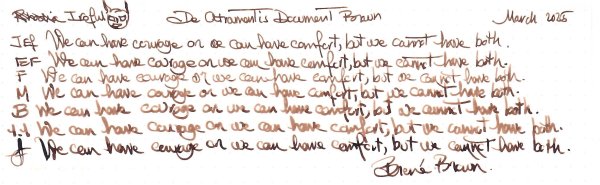 Rhodia Ireful De Atramentis Document Brown March 2025
JEF We can have courage or we can have comfort, but we cannot have both.
EF We can have courage or we can have comfort, but we cannot have both.
F We can have courage or we can have comfort, but we cannot have both.
M We can have courage or we can have comfort, but we cannot have both.
B We can have courage or we can have comfort, but we cannot have both.
1.1 We can have courage or we can have comfort, but we cannot have both.
We can have courage or we can have comfort, but we cannot have both.
Brené Brown.